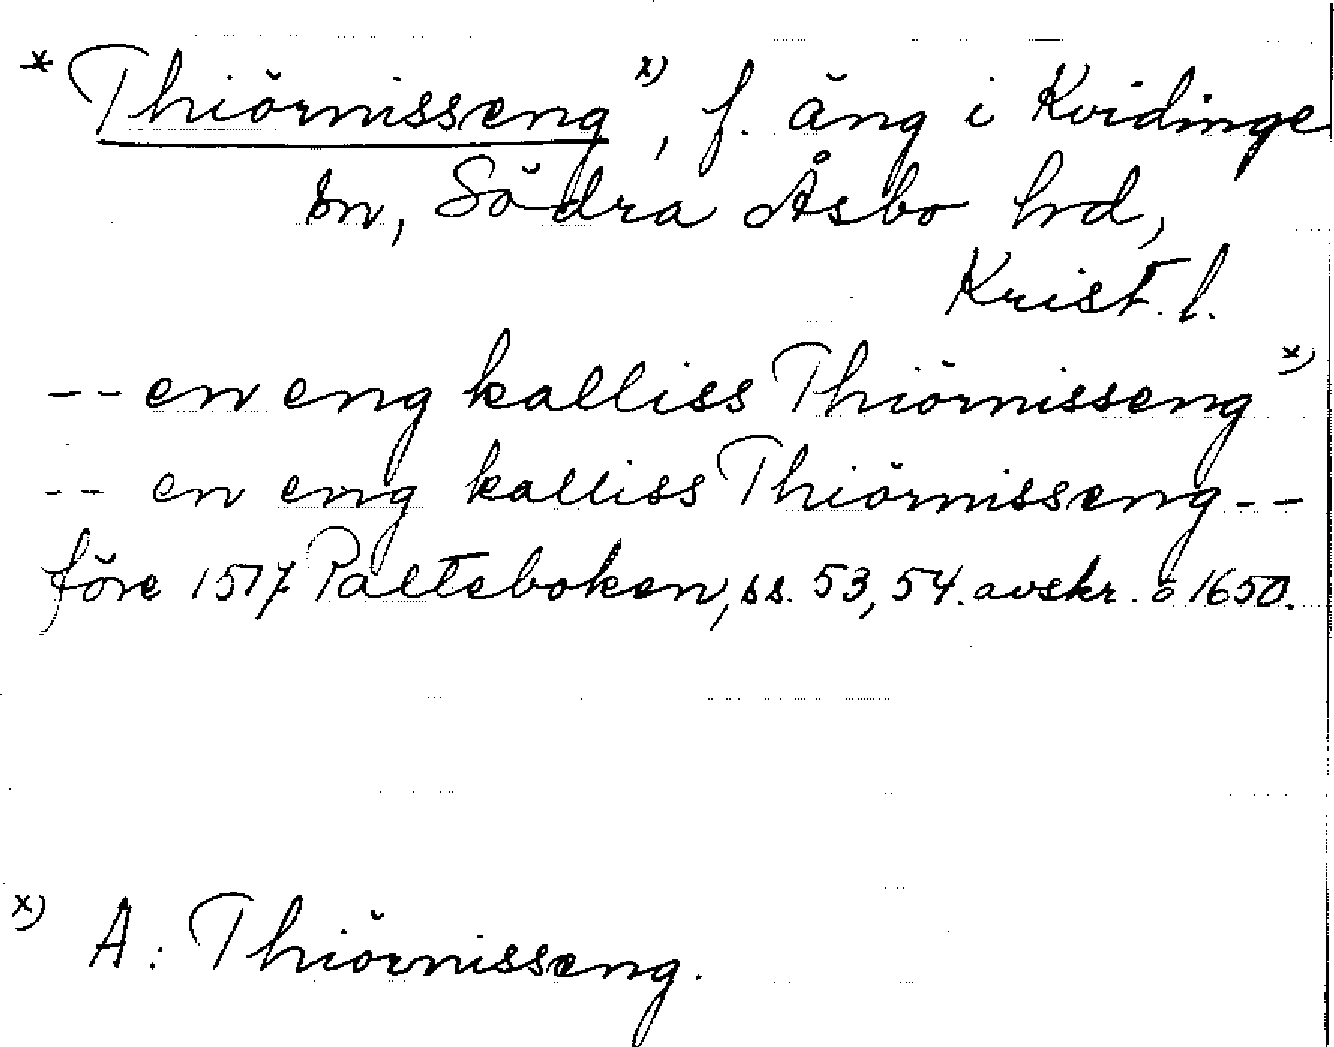 * Thiörnisseng x), f. äng i Kvidinge
sn, Södra Åsbo hd,
Krist. l.
-- en eng kalliss Thiörnisseng x)
-- en eng kalliss Thiörnisseng --
före 1517 Palteboken, ss. 53, 54. avskr. ö 1650.
x) A: Thiörnisseng.